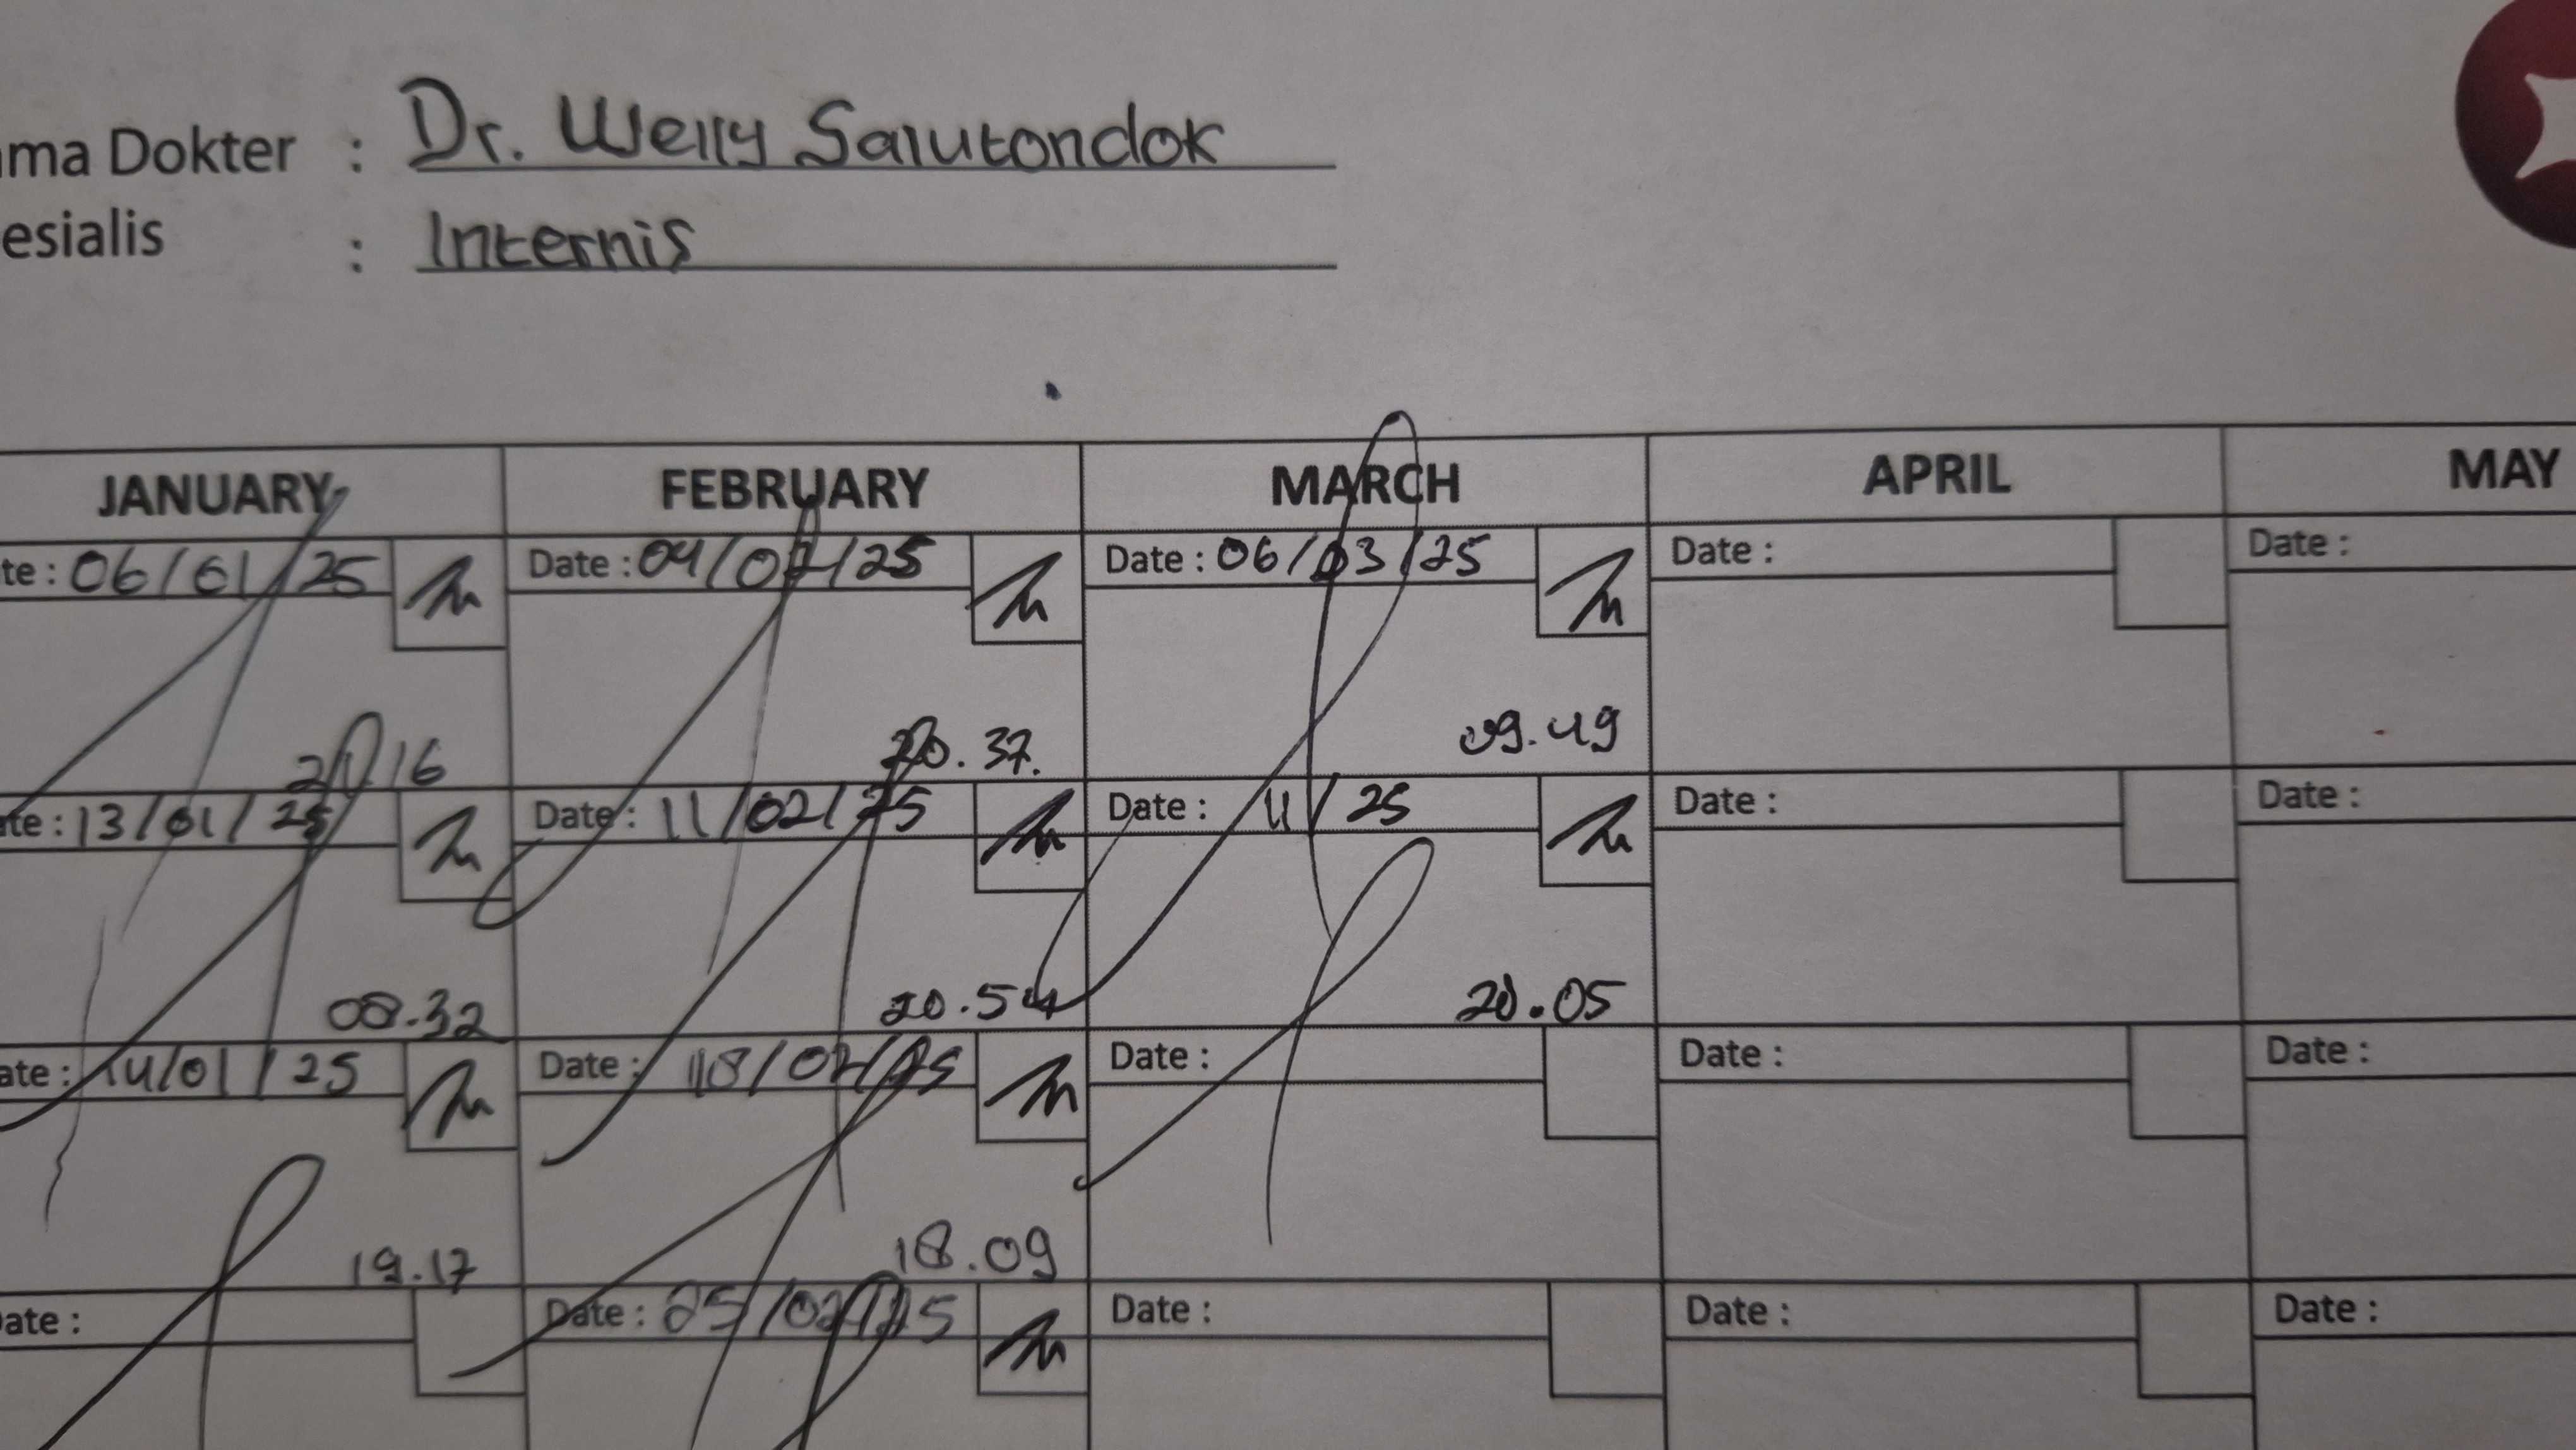 ma Dokter : Dr. Welly Salutondok
esialis : Internis
JANUARY FEBRUARY MARCH APRIL MAY
te : 06/01/25 Date : 04/02/25 Date : 06/03/25 Date : Date :
16 20.37. 09.49
te : 13/01/25 Date : 11/02/25 Date : 11/ 25 Date : Date :
08.32 20.54 20.05
ate : 14/01/25 Date : 18/02/25 Date : Date : Date :
19.17 18.09
ate : Date : 25/02/25 Date : Date : Date :